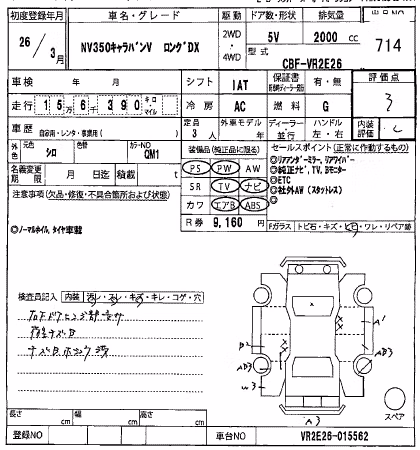 初度登録年月 車名・グレード 駆動 ドア数・形状 排気量 出品NO
26 / 3月 NV350キャラバンV ロングDX 2WD・4WD 5V 2000 cc 714
型式 CBF-VR2E26
車検 年 月 シフト IAT 保証書 有・無 評価点
走行 1 5 万 6 千 3 9 0 キロ・マイル 冷房 AC 燃料 G 3
車歴 自家用・レンタ・事業用( ) 定員 3人 外車モデル 年 ディーラー・並行 ハンドル 左・右 内装評価 C
外色 元色 シロ 色替 カラーNO QM1
装備品(純正品に限る) セールスポイント(正常に作動するもの)
名義変更期限 月 日迄 積載 t
PS PW AW
SR TV ナビ
カワ エアB ABS
R券 9,160 円
◎リアアンダーミラー、リアワイパー
◎純正ナビ,TV,Bモニター
◎ETC
◎社外AW(スタットレス)
◎
注意事項(欠品・修復・不具合箇所および状態)
◎ノーマルホイル,タイヤ車載
Fガラス トビ石・キズ・ヒビ・ワレ・リペア跡
検査員記入 内装 汚レ・スレ・キズ・キレ・コゲ・穴
A1
B2
AB3
AB3
W3
A3
スペア
長さ cm 幅 cm 高さ cm
登録NO 車台NO VR2E26-015562